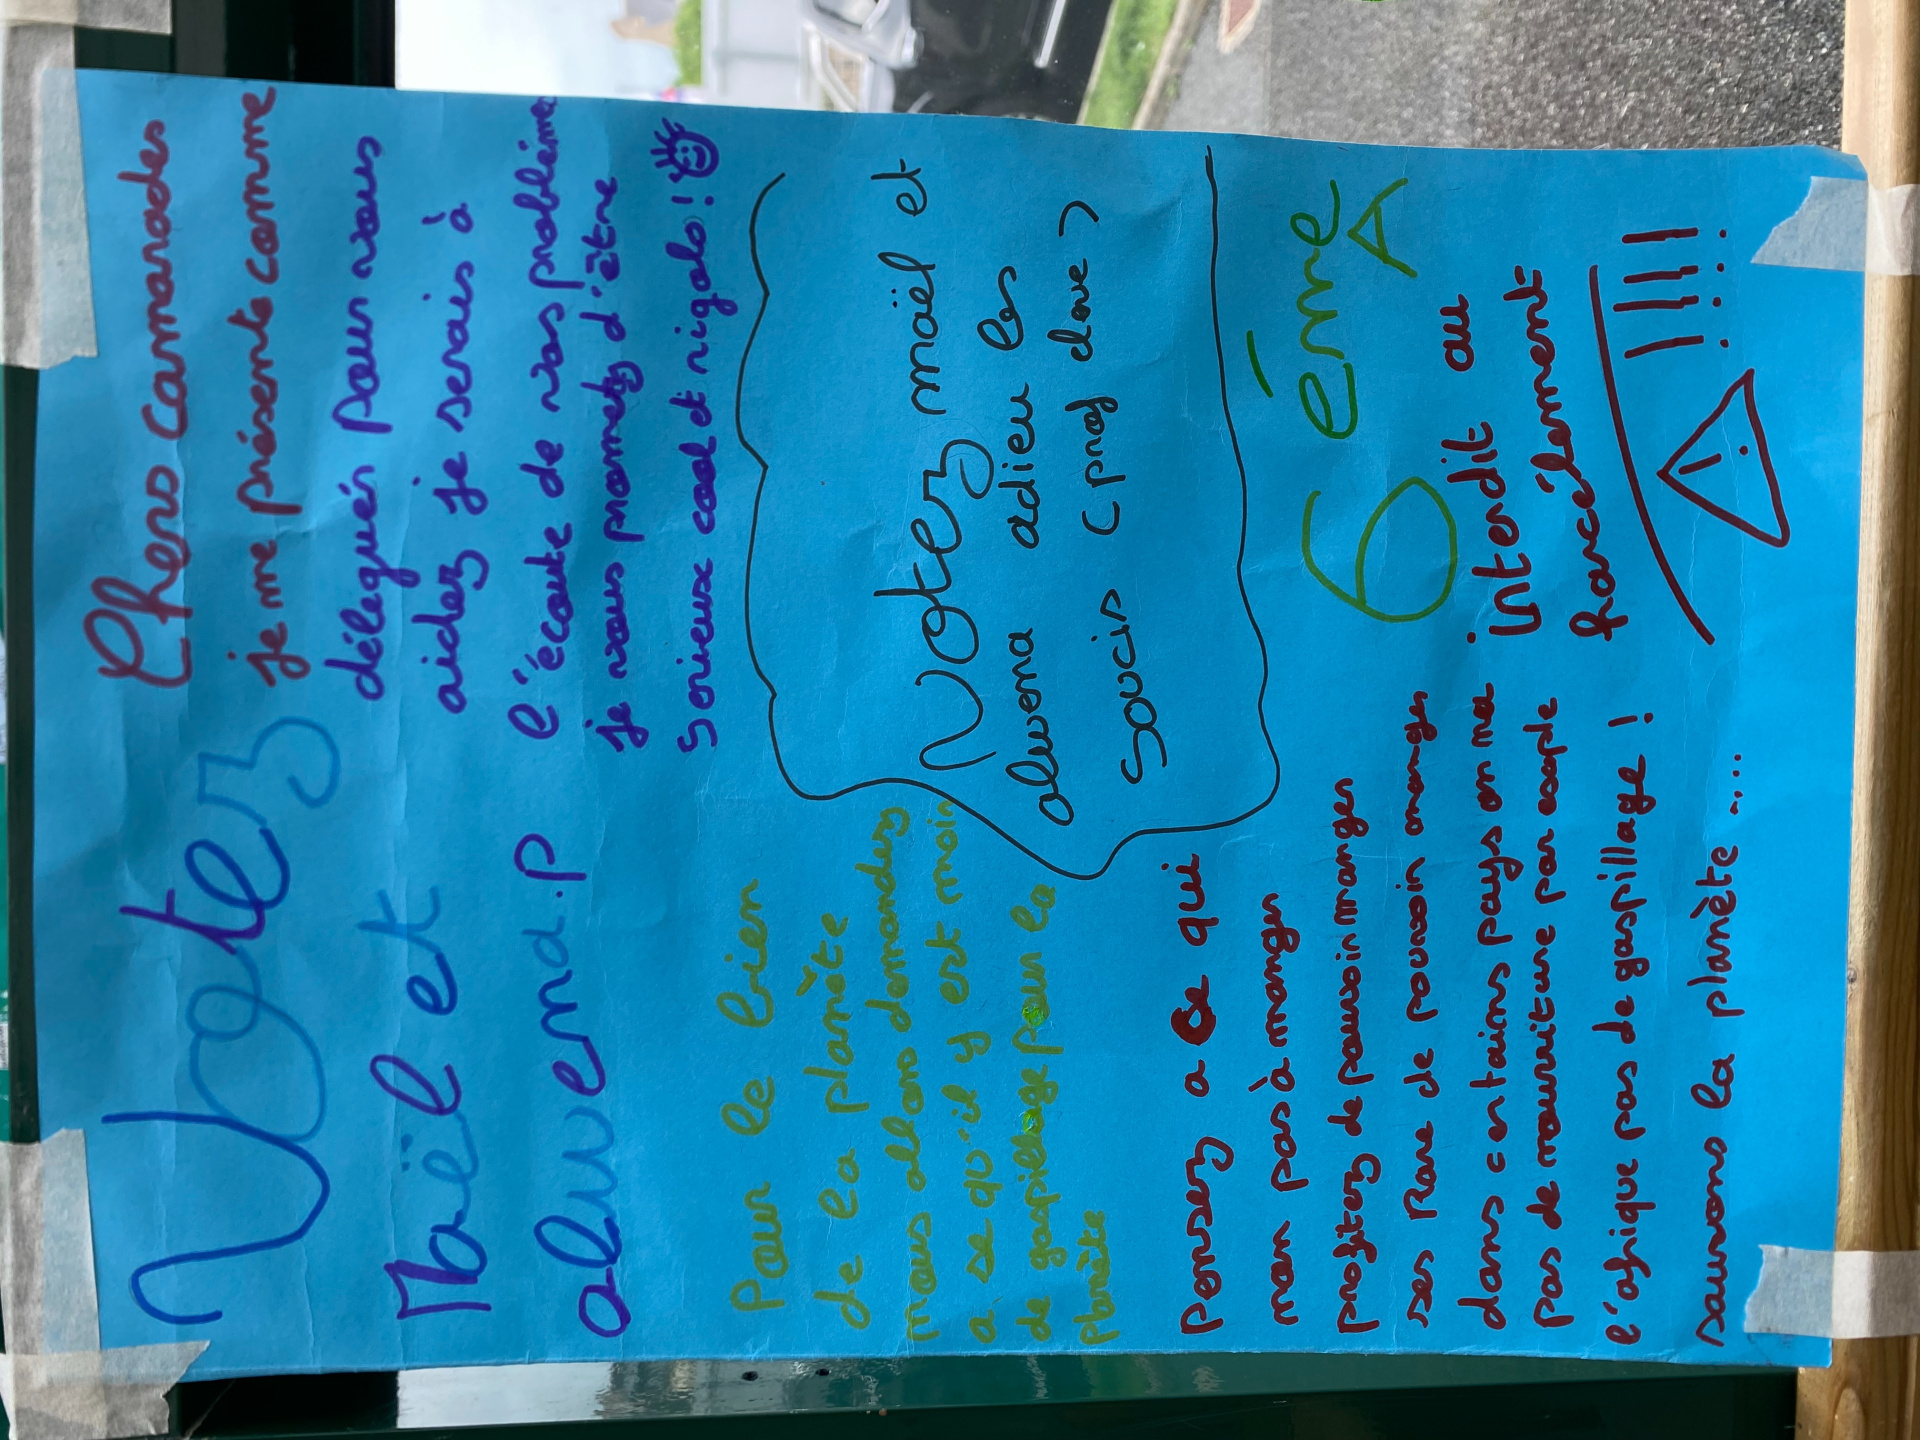 Votez
Maël et
alwena.P
Chers camarades
je me présente comme
déléguér pour vous
aidez je serais à
l'écoute de vos problème
je vous promets d'être
serieux cool et rigolo!
Votez maël et
alwena adieu les
soucis (prof done)
Pour le bien
de la planète
nous allons demandez
a se qu'il y est moin
de gaspillage pour la
planète
6 éme
A
pensez a ce qui
non pas à manger
profitez de pouvoir manger
ses Rare de pouvoir manger
dans certains pays on ma
pas de nourriture par exople
l'afrique pas de gaspillage !
sauvons la planète ....
interdit au
harcélement
!!!!
!